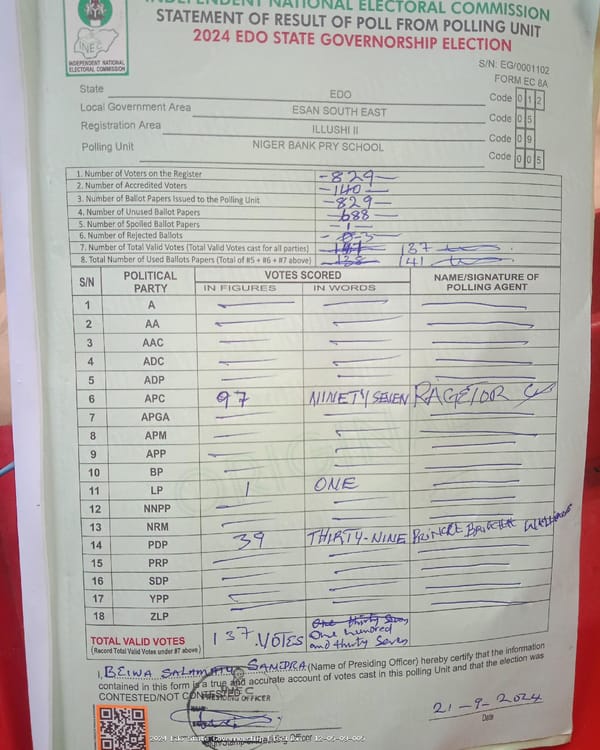 INDEPENDENT NATIONAL ELECTORAL COMMISSION
STATEMENT OF RESULT OF POLL FROM POLLING UNIT
2024 EDO STATE GOVERNORSHIP ELECTION
INEC
INDEPENDENT NATIONAL
ELECTORAL COMMISSION
S/N: EG/0001102
FORM EC 8A
State EDO Code 0 1 2
Local Government Area ESAN SOUTH EAST Code 0 5
Registration Area ILLUSHI II Code 0 9
Polling Unit NIGER BANK PRY SCHOOL Code 0 0 5
1. Number of Voters on the Register -829-
2. Number of Accredited Voters -140-
3. Number of Ballot Papers Issued to the Polling Unit -829-
4. Number of Unused Ballot Papers -688-
5. Number of Spoiled Ballot Papers -1-
6. Number of Rejected Ballots 3
7. Number of Total Valid Votes (Total Valid Votes cast for all parties) 137
8. Total Number of Used Ballot Papers (Total of #5 + #6 + #7 above) 138 141
S/N POLITICAL PARTY VOTES SCORED NAME/SIGNATURE OF POLLING AGENT
IN FIGURES IN WORDS
1 A
2 AA
3 AAC
4 ADC
5 ADP
6 APC 97 NINETY SEVEN RAGETOR
7 APGA
8 APM
9 APP
10 BP
11 LP 1 ONE
12 NNPP
13 NRM
14 PDP 39 THIRTY-NINE
15 PRP
16 SDP
17 YPP
18 ZLP
TOTAL VALID VOTES 137 VOTES One thirty Seven
(Record Total Valid Votes under #7 above) One hundred and thirty Seven
I, BEIWA SALAMATU SANDRA (Name of Presiding Officer) hereby certify that the information
contained in this form is a true and accurate account of votes cast in this polling Unit and that the election was
CONTESTED/NOT CONTESTED
INEC
PRESIDING OFFICER
21-9-2024
Date
2024 Edo State Governorship Election 12-05-09-005